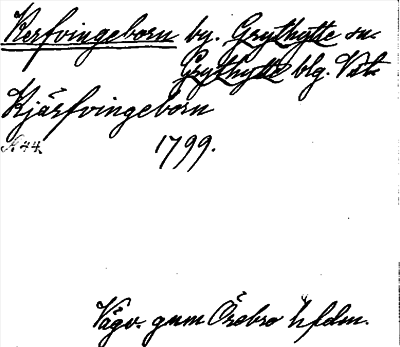 Kerfvingeborn by. Grythytte sn.
Grythytte blg. Vstm.
Kjärfvingeborn
N 44. 1799.
Vägv. gnm Örebro h fdm.